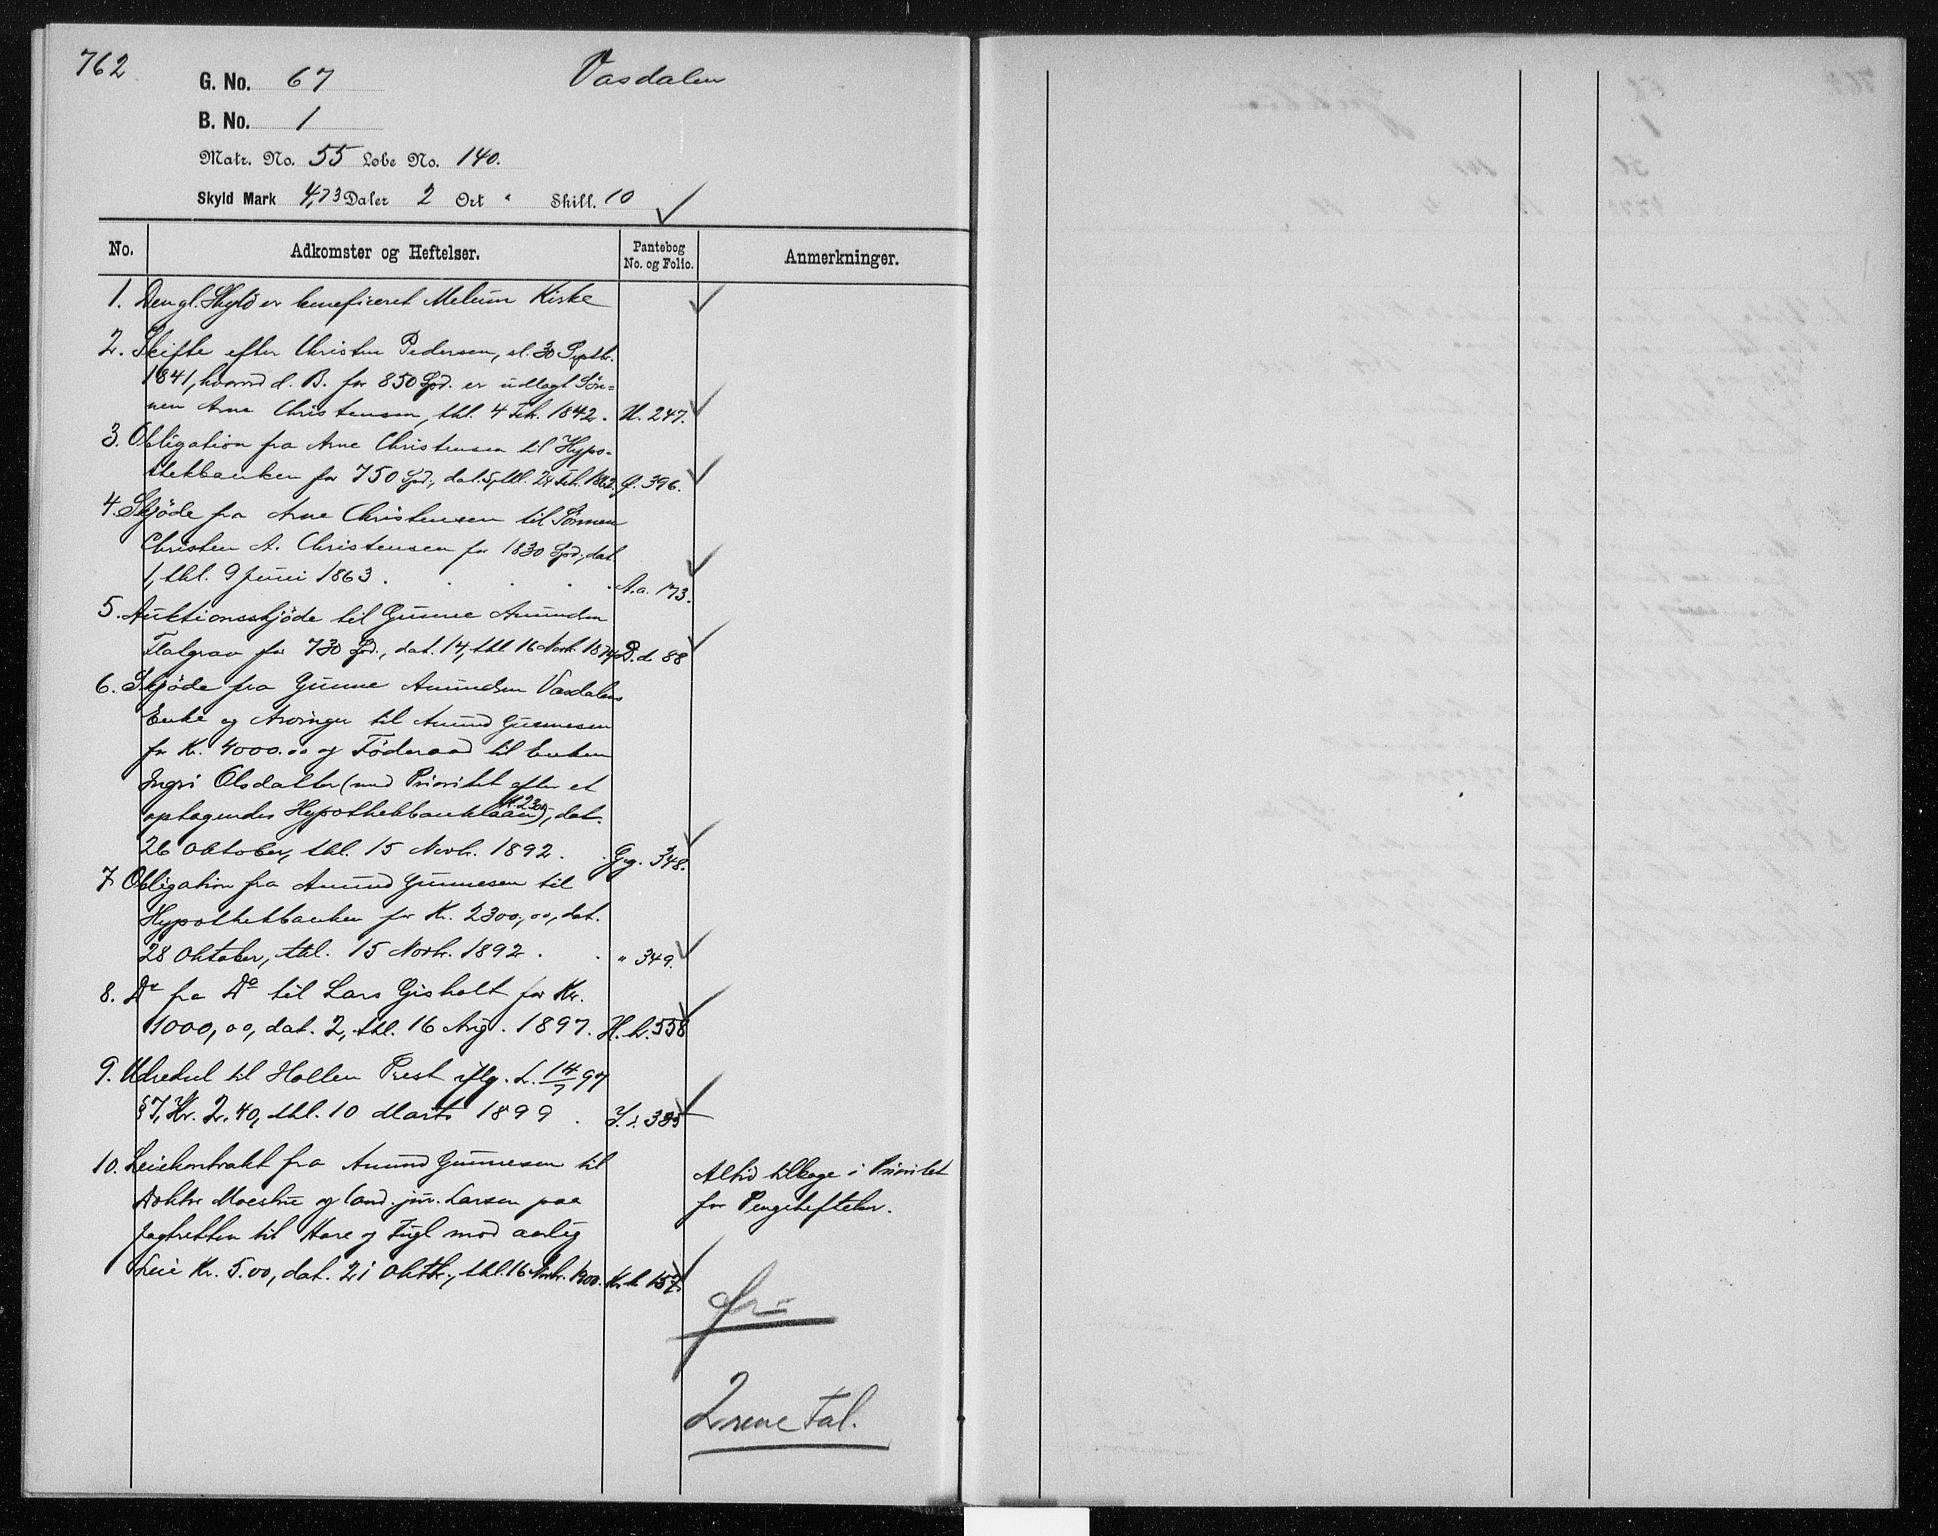 762
G. No. 67 Vasdalen
B. No. 1
Matr. No. 55 Løbe No. 140.
Skyld Mark 4,73 Daler 2 Ort " Skill. 10
No. Adkomster og Heftelser. Pantebog No. og Folio. Anmerkninger.
1. Den gl. Skyld er beneficeret Melum Kirke
2. Skifte efter Christen Pedersen, sl. 30 Septbr.
1841, hvorved d. B. for 850 Spd. er udlagt Søn-
nen Arne Christensen, thl. 4 Feb. 1842. U. 247.
3. Obligation fra Arne Christensen til Hypo-
thekbanken for 750 Spd., dat. 5, thl. 24 Feb. 1862. Q. 396.
4. Skjöde fra Arne Christensen til Sönnen
Christen A. Christensen for 1830 Spd., dat.
1, thl. 9 Juni 1863. A.a. 173.
5. Auktionsskjöde til Gunne Amundsen
Flatgrav for 730 Spd., dat. 14, thl. 16 Novb. 1874. D.d. 88
6. Skjöde fra Gunne Amundsen Vasdalens
Enke og Arvinger til Amund Gunnesen
for Kr. 4000.00 og Föderaad til Enken
Ingri Olsdatter (med Prioritet efter et
optagendes Hypothekbanklaan Kr. 2300), dat.
26 Oktober, thl. 15 Novb. 1892. G.g. 348.
7 Obligation fra Amund Gunnesen til
Hypothekbanken for Kr. 2300,00, dat.
28 Oktober, thl. 15 Novbr. 1892. " 349.
8. Do fra Do til Lars Gisholt for Kr.
1000,00, dat. 2, thl. 16 Aug. 1897. H.h. 558
9. Udredsel til Hollen Prest iflg. L. 14/7 97
§ 7, Kr. 2,40, thl. 10 Marts 1899. I.i. 385
10. Leiekontrakt fra Amund Gunnesen til
Doktor Moestue og Cand. jur. Larsen paa
Jagtretten til Hare og Fugl mod aarlig
Leie Kr. 5.00, dat. 21 Oktbr., thl. 16 Novbr. 1900. K.k. 157.
Altid tilbage i Prioritet
for Pengeheftelser.
fri
2 rene Fol.